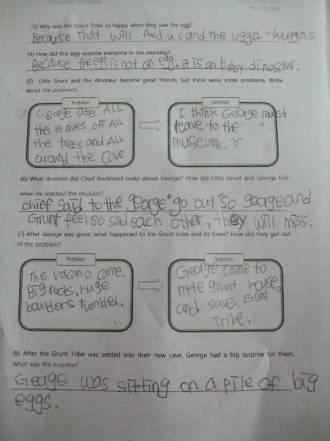 (3) Why was the Grunt Tribe so happy when they saw the egg?
Because That will feed us and the ugga-wuggas.
(4) How did the egg surprise everyone in the morning?
Because the egg is not an egg. it is an baby dinosaur.
(5) Little Grunt and the dinosaur became great friends, but there were some problems. Write
about the problems
Problem
George ate ALL
the leaves off ALL
the trees and ALL
around the cave
Solution
I think George must
leave to the
museum.
(6) What decision did Chief Rockhead make about George? How did Little Grunt and George feel
when he reached the decision?
chief said to the George "go out" so George and
Grunt feel so sad each other, they will miss.
(7) After George was gone, what happened to the Grunt tribe and its town? How did they get out
of the problem?
Problem
The volcano came.
Big rocks, huge
boulders tumbled.
Solution
George come to
little grunt house
and save Grunt
Tribe.
(8) After the Grunt Tribe was settled into their new cave, George had a big surprise for them.
What was the surprise?
George was sitting on a pile of big
eggs.